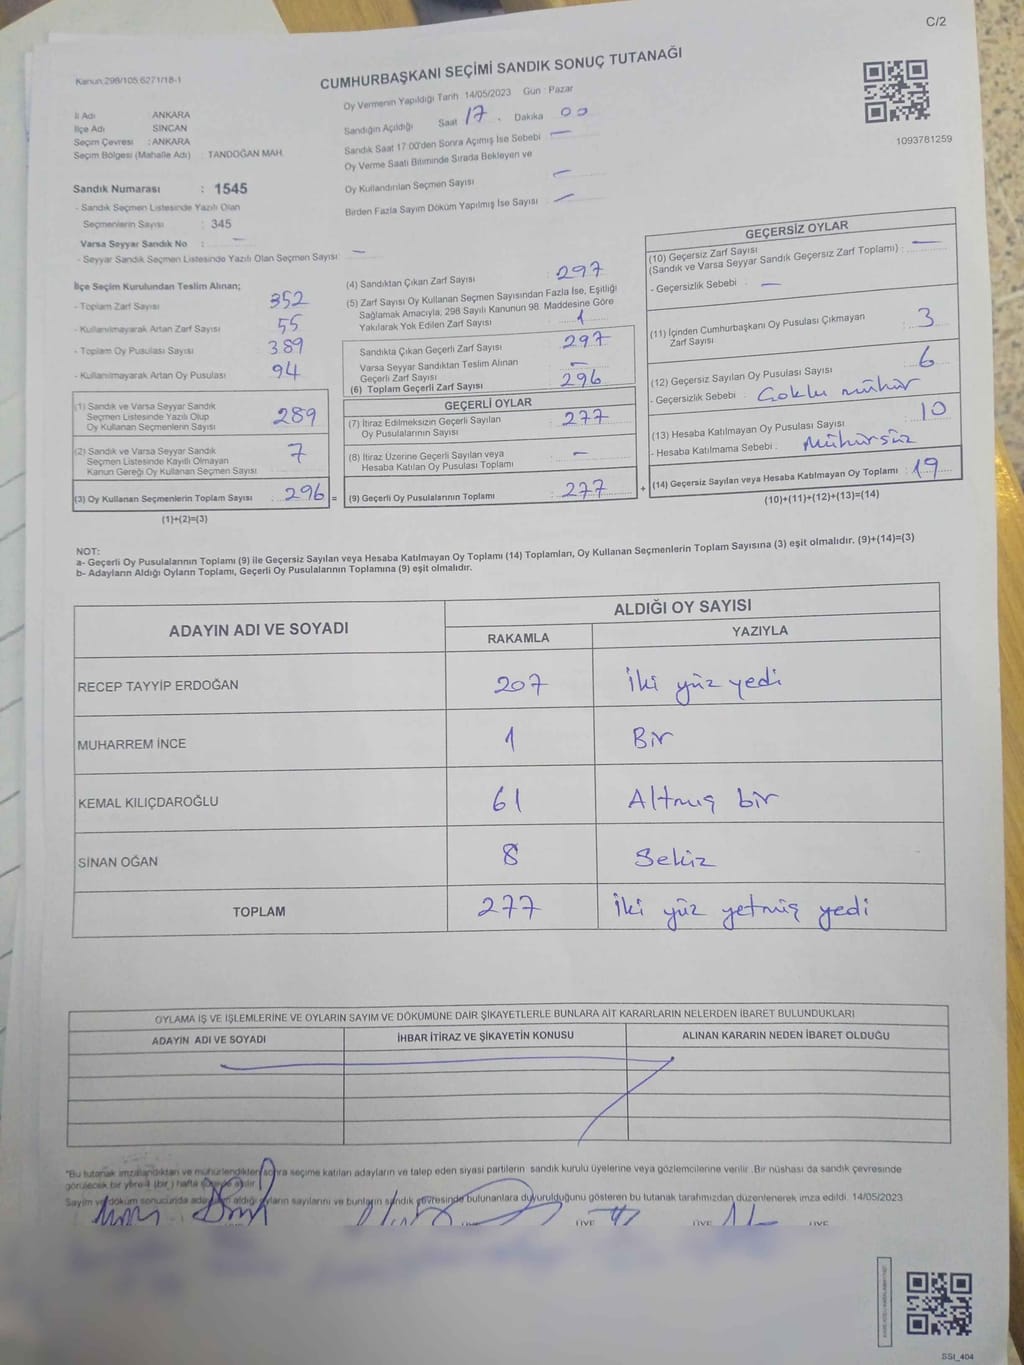 C/2
Kanun:298/105,6271/18-1
CUMHURBAŞKANI SEÇİMİ SANDIK SONUÇ TUTANAĞI
İl Adı ANKARA
İlçe Adı SİNCAN
Seçim Çevresi : ANKARA
Seçim Bölgesi (Mahalle Adı) : TANDOĞAN MAH.
Oy Vermenin Yapıldığı Tarih 14/05/2023 Gün : Pazar
Sandığın Açıldığı Saat 17 . Dakika 00
Sandık Saat 17:00'den Sonra Açımış İse Sebebi —
Oy Verme Saati Bitiminde Sırada Bekleyen ve
Oy Kullandırılan Seçmen Sayısı —
Birden Fazla Sayım Döküm Yapılmış İse Sayısı —
1093781259
Sandık Numarası : 1545
- Sandık Seçmen Listesinde Yazılı Olan
Seçmenlerin Sayısı : 345
Varsa Seyyar Sandık No : —
- Seyyar Sandık Seçmen Listesinde Yazılı Olan Seçmen Sayısı: —
İlçe Seçim Kurulundan Teslim Alınan;
- Toplam Zarf Sayısı 352
- Kullanılmayarak Artan Zarf Sayısı 55
- Toplam Oy Pusulası Sayısı 389
- Kullanılmayarak Artan Oy Pusulası 94
(1) Sandık ve Varsa Seyyar Sandık
Seçmen Listesinde Yazılı Olup
Oy Kullanan Seçmenlerin Sayısı 289
(2) Sandık ve Varsa Seyyar Sandık
Seçmen Listesinde Kayıtlı Olmayan
Kanun Gereği Oy Kullanan Seçmen Sayısı 7
(3) Oy Kullanan Seçmenlerin Toplam Sayısı 296 =
(1)+(2)=(3)
(4) Sandıktan Çıkan Zarf Sayısı : 297
(5) Zarf Sayısı Oy Kullanan Seçmen Sayısından Fazla İse, Eşitliği
Sağlamak Amacıyla, 298 Sayılı Kanunun 98. Maddesine Göre
Yakılarak Yok Edilen Zarf Sayısı : 1
Sandıkta Çıkan Geçerli Zarf Sayısı : 297
Varsa Seyyar Sandıktan Teslim Alınan
Geçerli Zarf Sayısı —
(6) Toplam Geçerli Zarf Sayısı 296
GEÇERLİ OYLAR
(7) İtiraz Edilmeksizin Geçerli Sayılan
Oy Pusulalarının Sayısı : 277
(8) İtiraz Üzerine Geçerli Sayılan veya
Hesaba Katılan Oy Pusulası Toplamı : —
(9) Geçerli Oy Pusulalarının Toplamı : 277 +
GEÇERSİZ OYLAR
(10) Geçersiz Zarf Sayısı
(Sandık ve Varsa Seyyar Sandık Geçersiz Zarf Toplamı) : —
- Geçersizlik Sebebi : —
(11) İçinden Cumhurbaşkanı Oy Pusulası Çıkmayan
Zarf Sayısı : 3
(12) Geçersiz Sayılan Oy Pusulası Sayısı : 6
- Geçersizlik Sebebi : Çoklu mühür
(13) Hesaba Katılmayan Oy Pusulası Sayısı : 10
- Hesaba Katılmama Sebebi : Mühürsüz
(14) Geçersiz Sayılan veya Hesaba Katılmayan Oy Toplamı : 19
(10)+(11)+(12)+(13)=(14)
NOT:
a- Geçerli Oy Pusulalarının Toplamı (9) ile Geçersiz Sayılan veya Hesaba Katılmayan Oy Toplamı (14) Toplamları, Oy Kullanan Seçmenlerin Toplam Sayısına (3) eşit olmalıdır. (9)+(14)=(3)
b- Adayların Aldığı Oyların Toplamı, Geçerli Oy Pusulalarının Toplamına (9) eşit olmalıdır.
ADAYIN ADI VE SOYADI ALDIĞI OY SAYISI
RAKAMLA YAZIYLA
RECEP TAYYİP ERDOĞAN 207 İki yüz yedi
MUHARREM İNCE 1 Bir
KEMAL KILIÇDAROĞLU 61 Altmış bir
SİNAN OĞAN 8 Sekiz
TOPLAM 277 İki yüz yetmiş yedi
OYLAMA İŞ VE İŞLEMLERİNE VE OYLARIN SAYIM VE DÖKÜMÜNE DAİR ŞİKAYETLERLE BUNLARA AİT KARARLARIN NELERDEN İBARET BULUNDUKLARI
ADAYIN ADI VE SOYADI İHBAR İTİRAZ VE ŞİKAYETİN KONUSU ALINAN KARARIN NEDEN İBARET OLDUĞU
"Bu tutanak imzalandıktan ve mühürlendikten sonra seçime katılan adayların ve talep eden siyasi partilerin sandık kurulu üyelerine veya gözlemcilerine verilir. Bir nüshası da sandık çevresinde
görülecek bir yere 1 (bir) hafta süreyle asılır.
Sayım ve döküm sonucunda adayların aldığı oyların sayılarını ve bunların sandık çevresinde bulunanlara duyurulduğunu gösteren bu tutanak tarafımızdan düzenlenerek imza edildi. 14/05/2023
ÜYE ÜYE ÜYE
SSI_404